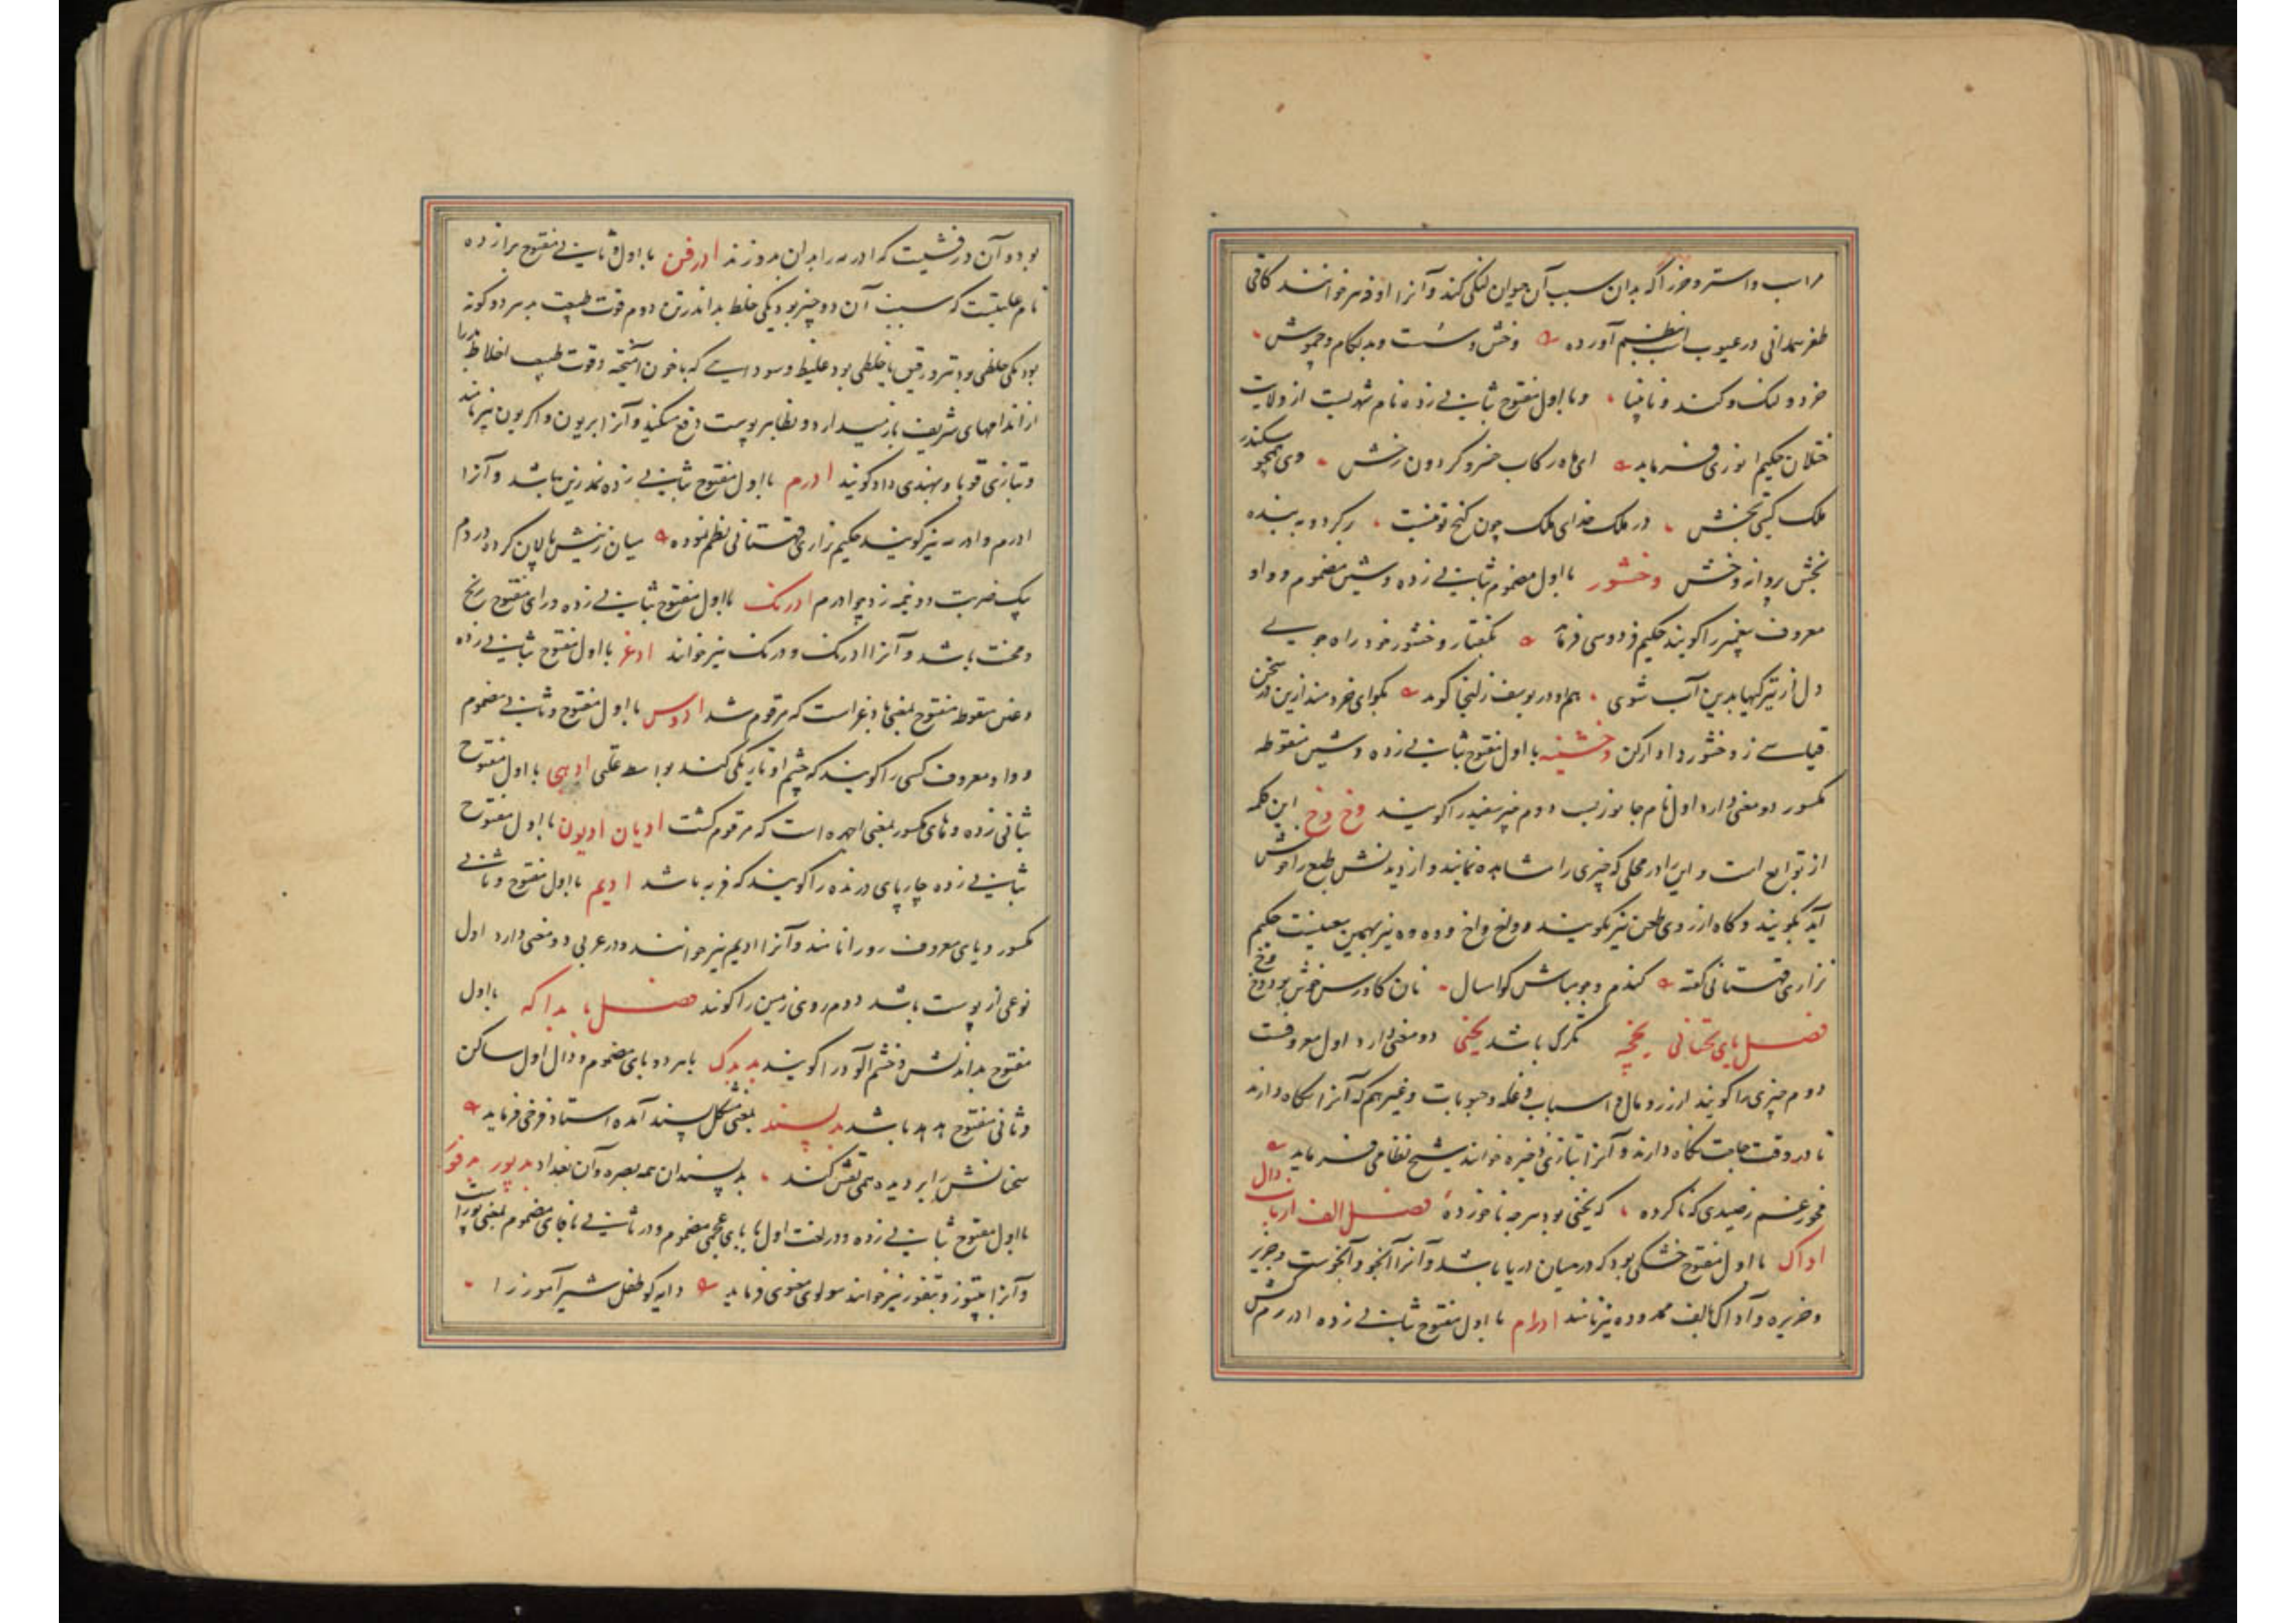 مر اسب و استر و خر را که بدان سبب آن حیوان لنگی کند و آنرا اوفر خوانند کافی
ظفر همدانی در عیوب اسب نظم آورده وخش و سست و بد لگام و چموش
خرد و لنگ و کند و نابینا و با اول مفتوح بثانی زده نام شهریست از ولایت
ختلان حکیم انوری فرماید ای ماه رکاب خسرو گردون رخش وی همچو سکندر
ملک گیتی بخش در ملک خدای ملک چون گنج تو نیست
بخش پرواز وخش وخشور با اول مضموم بثانی زده و شین مضموم و واو
معروف پیغمبر را گویند حکیم فردوسی فرماید بگفتار وخشور خود راه جوی
دل از تیرگیها بدین آب شوی هم او در یوسف زلیخا گوید بگو ای خردمند ازین در سخن
قیاسی ز وخشور دادار کن وخشینه با اول مفتوح بثانی زده و شین منقوطه
مکسور دو معنی دارد اول نام جانوریست دوم چیز سفید را گویند وخ وخ این کلمه
از توابع است و این را در محلی که چیزی را مشاهده نمایند و از دیدنش طبع را خوش
آید بگویند و گاه از روی طعن نیز بگویند و واخ واخ و وه وه نیز بهمین معنیست حکیم
نزاری قهستانی گفته گندم و جو مباش گو امسال نان گاورس خوش بود وخ وخ
فصل یای تحتانی یخچه تگرگ باشد یخنی دو معنی دارد اول معروفست
دوم چیزی را گویند از زر و مال و اسباب و غله و حبوبات و غیر هم که آنرا نگاه دارند
تا در وقت حاجت نگاه دارند و آنرا بتازی ذخیره خوانند شیخ نظامی فرماید
مخور غم ز صیدی که ناکرده که یخنی بود هر چه ناخورده فصل الف از باب دال
اداک با اول مفتوح خشکی بود که در میان دریا باشد و آنرا آبخو و آبخوست و جزیر
و جزیره و آداک بالف ممدوده نیز نامند ادرام با اول مفتوح بثانی زده ادرم کش
بود و آن درفشیست که ادرمه را بدان بدوزند ادرفن با اول و ثانی مفتوح برا زده
نام علتیست که سبب آن دو چیز بود یکی خلط بد اندر تن دوم قوت طبیعت بد هر دو گونه
بود یکی خلطی بود تیز و رقیق با خلطی بود غلیظ و سوداییی که با خون آمیخته و قوت طبیعت اخلاط بد را
از اندامهای شریف باز میدارد و بظاهر پوست دفع میکند و آنرا ابریون و اکریون نیز نامند
و بتازی قوبا و بهندی داد گویند ادرم با اول مفتوح بثانی زده نمد زین باشد و آنرا
ادرم و ادرمه نیز گویند حکیم نزاری قهستانی نظم نموده میان زینش تا پالان کرده در دم
بیک ضربت دو نیمه زد چو ادرم ادرنگ با اول مفتوح بثانی زده و رای مفتوح رنج
و محنت باشد و آنرا ادرنگ و درنگ نیز خوانند ادغر با اول مفتوح بثانی زده
و غین منقوطه مفتوح بمعنی بادغر است که مرقوم شد ادوس با اول مفتوح و ثانی مضموم
و واو معروف کسی را گویند که چشم او تاریکی کند بواسطه علتی ادهی با اول مفتوح
بثانی زده و های مکسور بمعنی است که مرقوم گشت ادیان ادیون با اول مفتوح
بثانی زده چارپای درنده را گویند که فربه باشد ادیم با اول مفتوح و ثانی
مکسور و یای معروف رو را نامند و آنرا ادیم نیز خوانند و در عربی دو معنی دارد اول
نوعی از پوست باشد دوم روی زمین را گویند فصل با بداکه با اول
مفتوح بد اندیش و خشم آلود را گویند بدبدک با هر دو بای مضموم و دال اول ساکن
و ثانی مفتوح هدهد باشد بدپسند بمعنی مشکل پسند آمده استاد فرخی فرماید
سخنانش را بر دیده همی نقش کنند بدپسندان همه بصره و آن بغداد بدپور بدفور
با اول مفتوح بثانی زده و در لغت اول با بای عجمی مضموم و در ثانی با فای مضموم بمعنی
و آنرا بتپوز و بتفوز نیز خوانند مولوی معنوی فرماید دایه کو طفل شیرآموز را